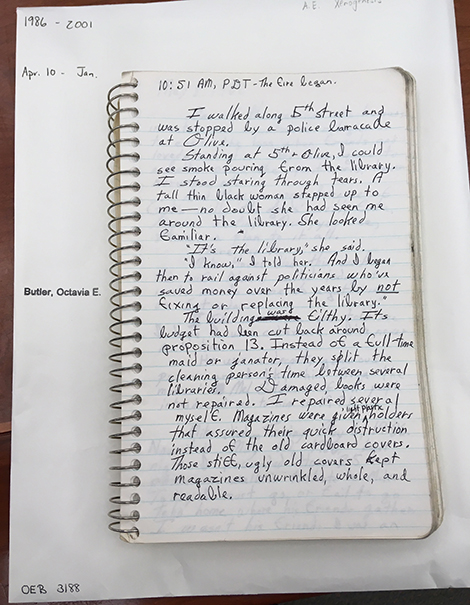 A.E. Xenogenesis
1986 - 2001
Apr. 10 - Jan.
10:51 AM, PDT - The fire began.
I walked along 5th street and
was stopped by a police barracade
at Olive.
Standing at 5th + Olive, I could
see smoke pouring from the library.
I stood staring through tears. A
tall thin black woman stepped up to
me — no doubt she had seen me
around the library. She looked
familiar.
"It's the library," she said.
"I know," I told her. And I began
then to rail against politicians who've
saved money over the years by not
fixing or replacing the library."
The building was filthy. It's
budget had been cut back around
proposition 13. Instead of a full-time
maid or janator, they split the
cleaning person's time between several
libraries. Damaged books were
not repaired. I repaired several
myself. Magazines were given light plastic holders
that assured their quick distruction
instead of the old cardboard covers.
Those stiff, ugly old covers kept
magazines unwrinkled, whole, and
readable.
Butler, Octavia E.
OEB 3188